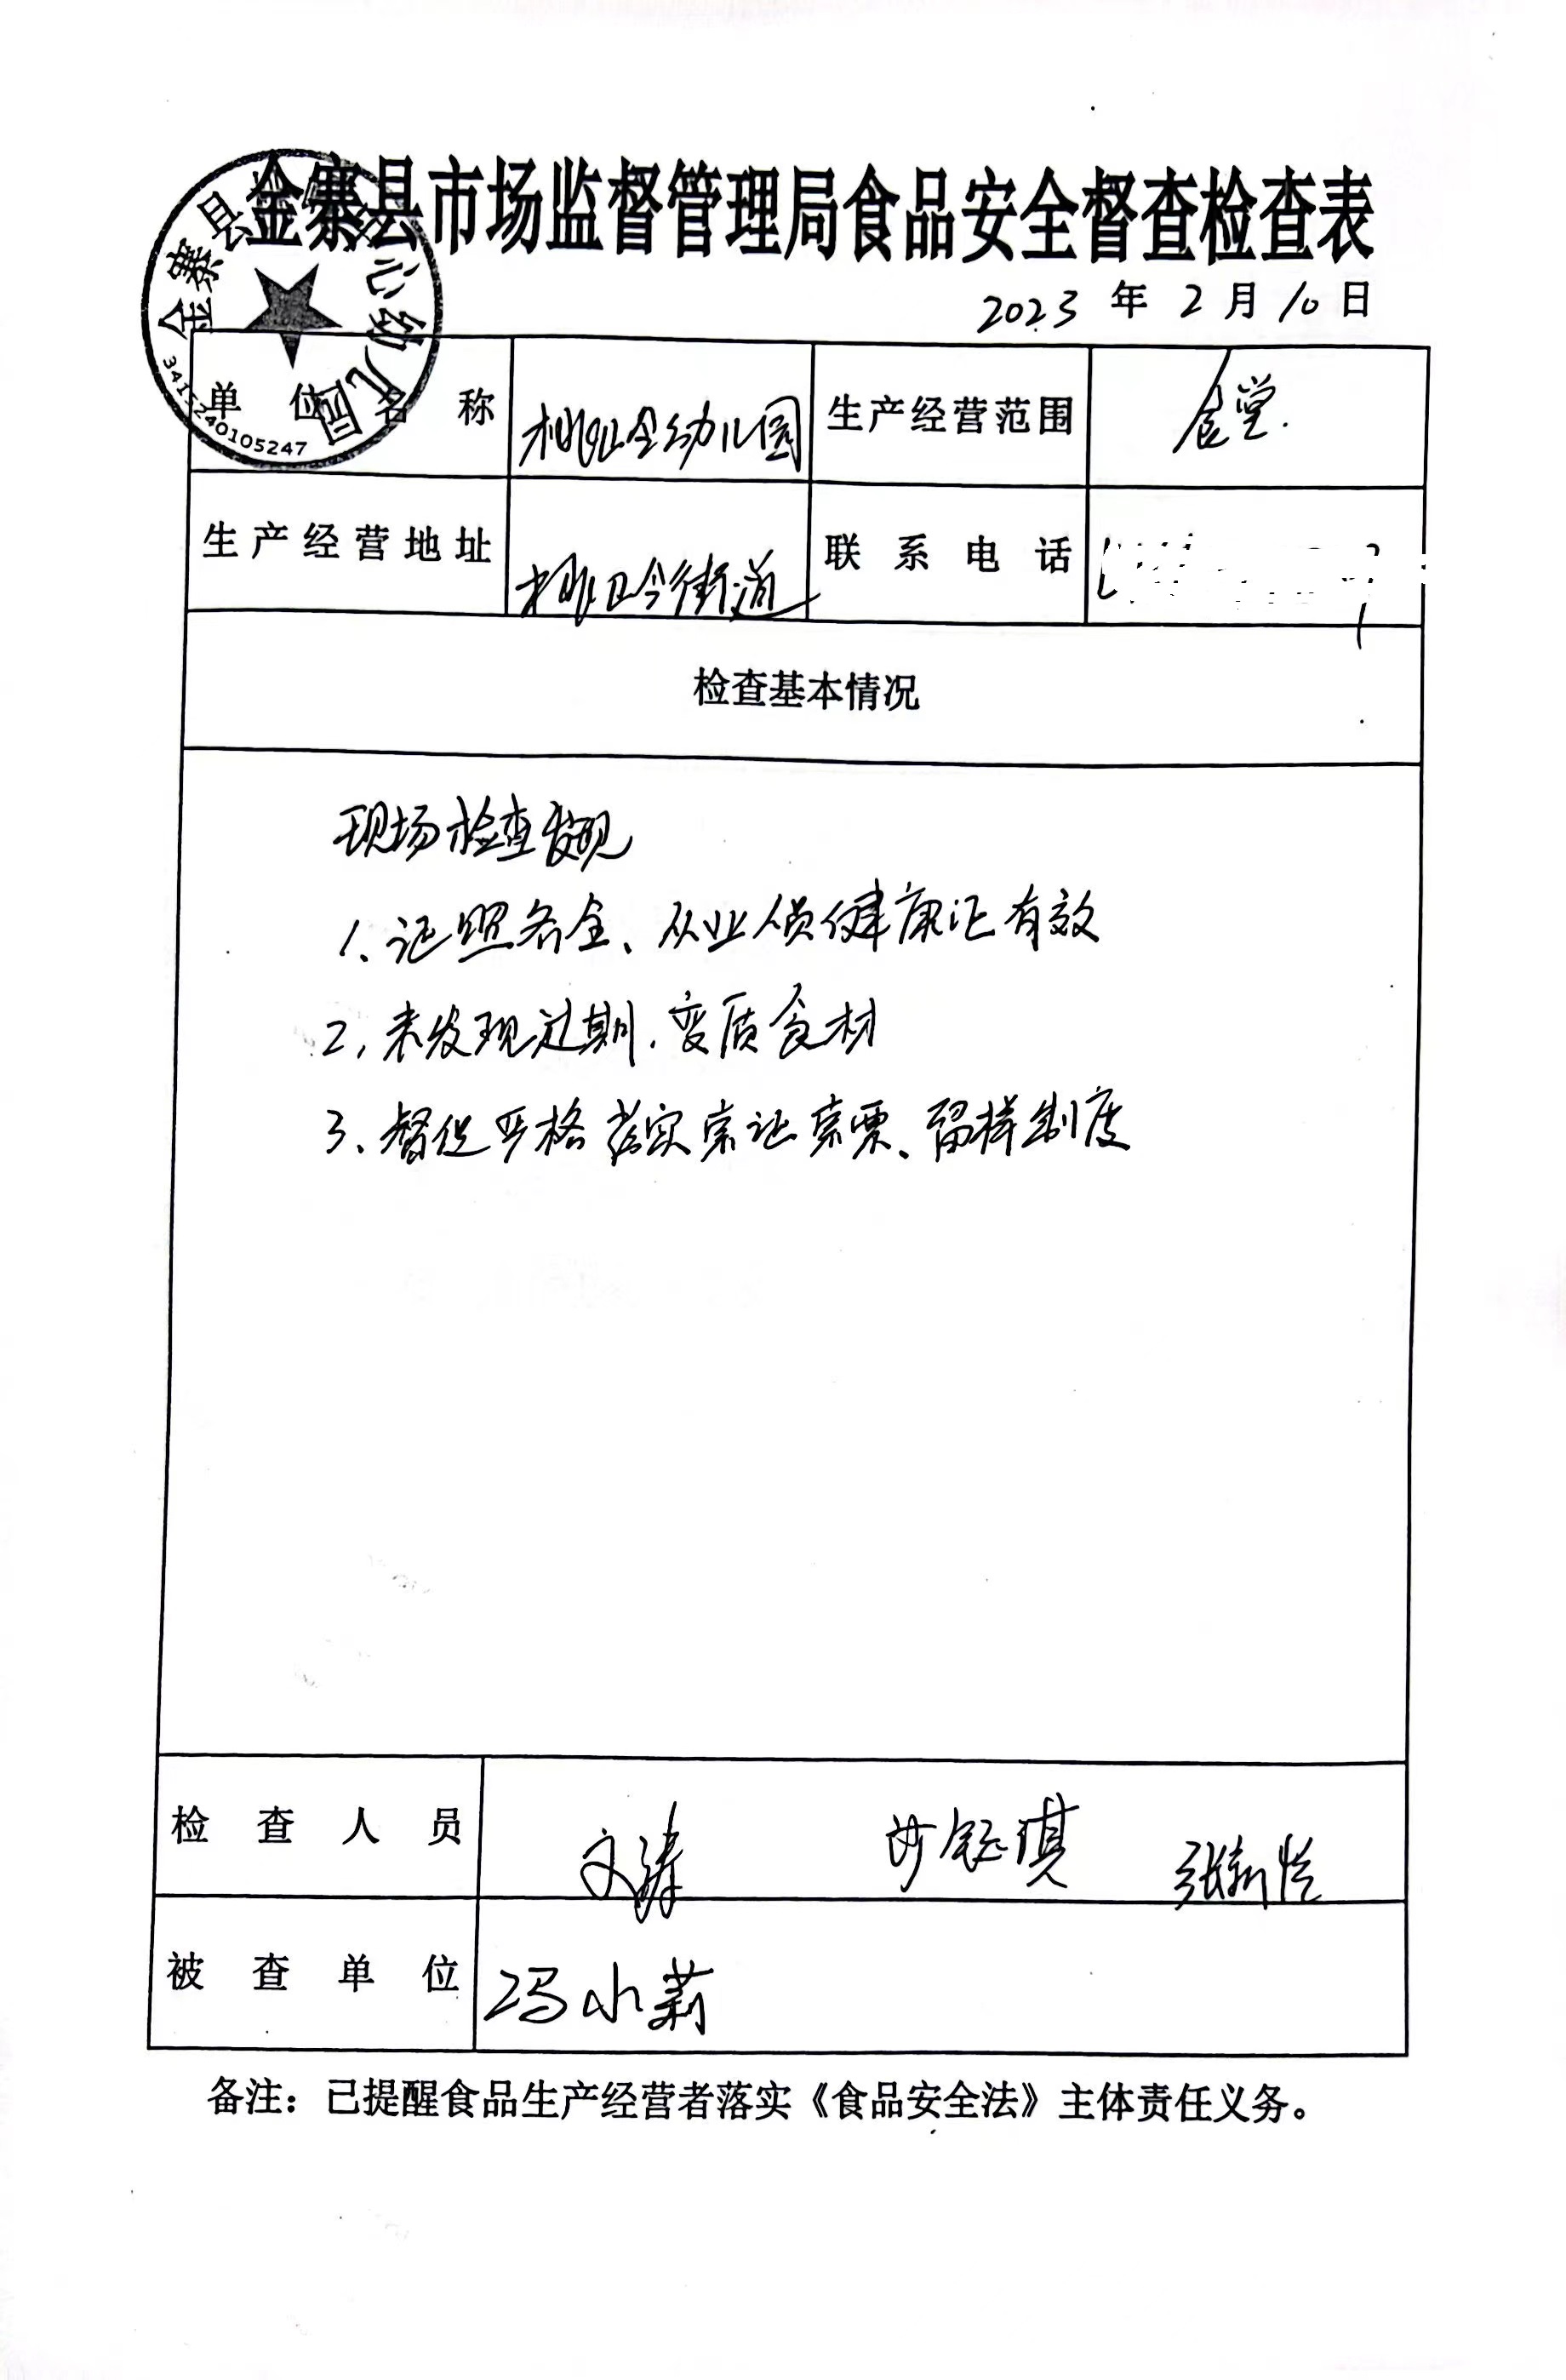 金寨县市场监督管理局食品安全督查检查表
2023年2月10日
金寨县 心幼儿园
3415240105247
单位名称 桃岭幼儿园 生产经营范围 食堂.
生产经营地址 桃岭街道 联系电话
检查基本情况
现场检查发现
1、证照齐全、从业人员健康证有效
2、未发现过期、变质食材
3、督促严格落实索证索票、留样制度
检查人员 文涛
被查单位 冯小莉
备注：已提醒食品生产经营者落实《食品安全法》主体责任义务。